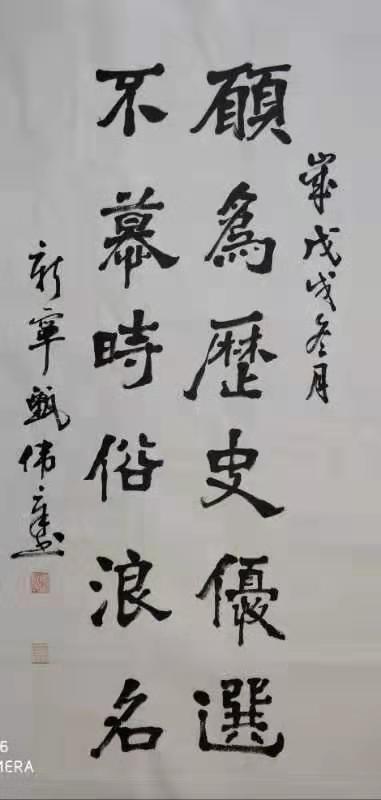 歲戊戌冬月
願為歷史優選
不慕時俗浪名
新寧甄伟
6
MERA